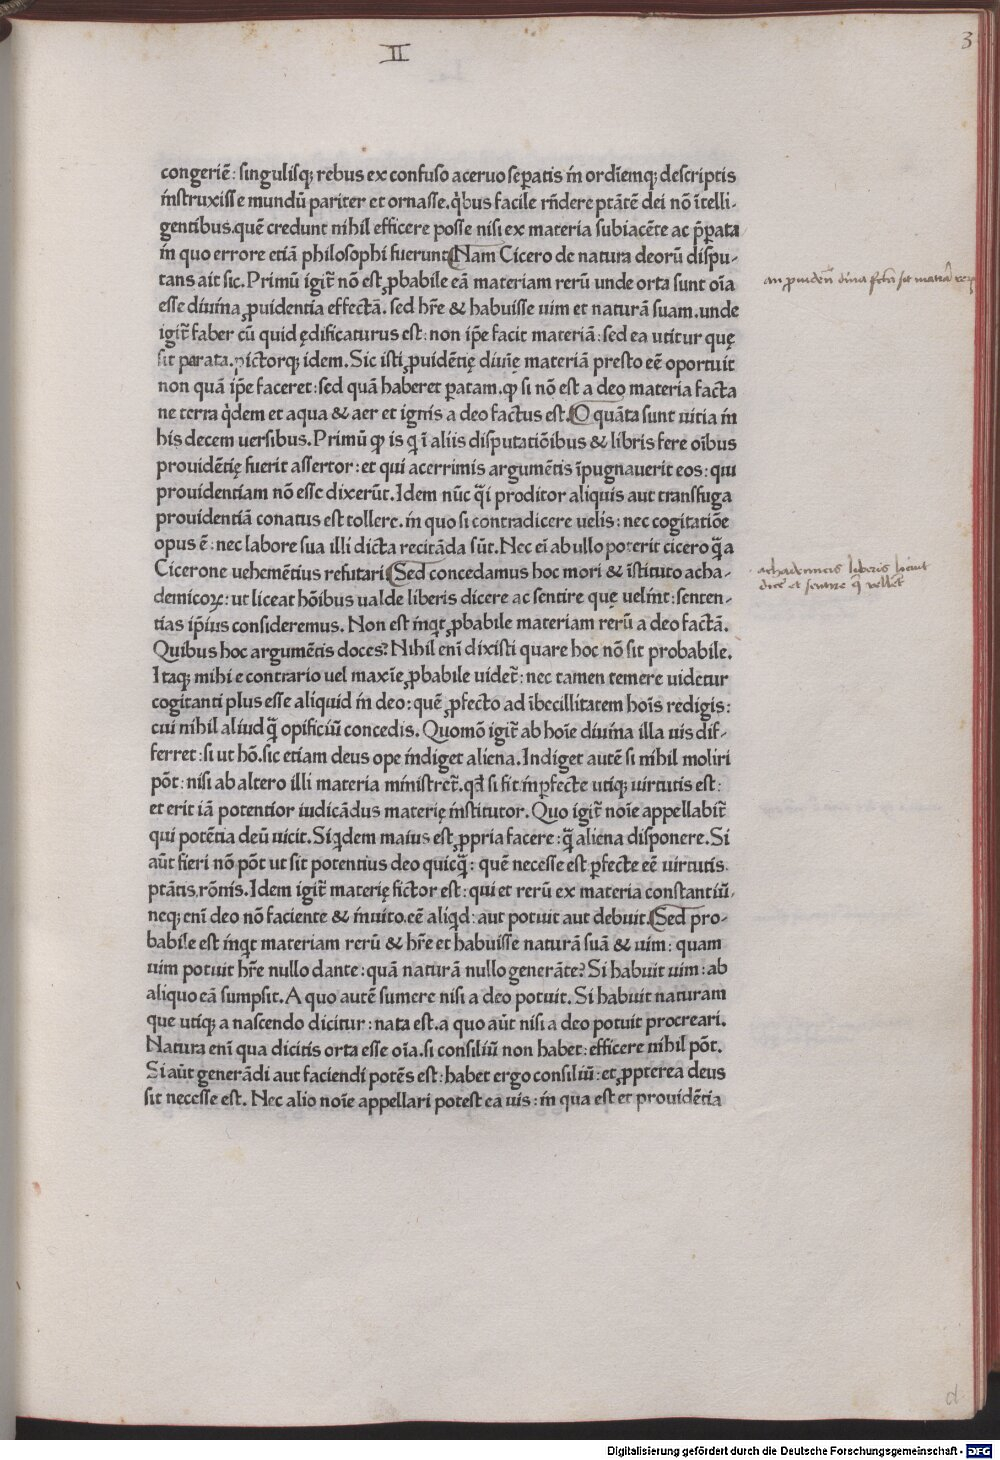 II
3
congeriē: singulisq; rebus ex confuso aceruo seꝑatis in ordiēmq; descriptis
instruxisse mundū pariter et ornasse. qͥbus facile rn̄dere ptātē dei nō ītelli-
gentibus. quē credunt nihil efficere posse nisi ex materia subiacēte ac p̄ꝑata
in quo errore etiā philosophi fuerunt. Nam Cicero de natura deorū dispu-
tans ait sic. Primū igit̄ nō est ꝓbabile eā materiam rerū unde orta sunt oīa
esse diuina ꝓuidentia effectā. sed hr̄e & habuisse uim et naturā suam. unde
igit̄ faber cū quid ędificaturus est: non ip̄e facit materiā: sed ea utitur quę
sit parata. pictorq; idem. Sic isti ꝓuidētię diuīe materiā presto eē oportuit
non quā ip̄e faceret: sed quā haberet ꝑatam. ꝙ si nō est a deo materia facta
ne terra qͥdem et aqua & aer et ignis a deo factus est. O quāta sunt uitia in
his decem uersibus. Primū ꝙ is q ī aliis disputatiōibus & libris fere oībus
prouidētię fuerit assertor: et qui acerrimis argumētis īpugnauerit eos: qui
prouidentiam nō esse dixerūt. Idem nūc q̄i proditor aliquis aut transfuga
prouidentiā conatus est tollere. in quo si contradicere uelis: nec cogitatiōe
opus ē: nec labore sua illi dicta recitāda sūt. Nec ei ab ullo poterit cicero q̄ a
Cicerone uehemētius refutari. Sed concedamus hoc mori & īstituto acha-
demicoꝝ: ut liceat hōibus ualde liberis dicere ac sentire quę uelint: senten-
tias ip̄ius consideremus. Non est inqt ꝓbabile materiam rerū a deo factā.
Quibus hoc argumētis doces? Nihil enī dixisti quare hoc nō sit probabile.
Itaq; mihi e contrario uel maxīe ꝓbabile uidet̄: nec tamen temere uidetur
cogitanti plus esse aliquid in deo: quē ꝓfecto ad ībecillitatem hoīs redigis:
cui nihil aliud q̄ opificiū concedis. Quomō igit̄ ab hoīe diuina illa uis dif-
ferret: si ut hō. sic etiam deus ope indiget aliena. Indiget autē si nihil moliri
pōt: nisi ab altero illi materia ministret̄. qd̄ si fit inꝑfecte utiq; uirtutis est:
et erit iā potentior iudicādus materię institutor. Quo igit̄ noīe appellabit̄
qui potētia deū uicit. Siqͥdem maius est ꝓpria facere: q̄ aliena disponere. Si
aūt fieri nō pōt ut sit potentius deo quicq̄: quē necesse est ꝑfecte eē uirtutis.
ptātis. rōnis. Idem igit̄ materię fictor est: qui et rerū ex materia constantiū.
neq; enī deo nō faciente & inuito. eē aliqͥd: aut potuit aut debuit. Sed pro-
babile est inqt materiam rerū & hr̄e et habuisse naturā suā & uim: quam
uim potuit hr̄e nullo dante: quā naturā nullo generāte? Si habuit uim: ab
aliquo eā sumpsit. A quo autē sumere nisi a deo potuit. Si habuit naturam
que utiq; a nascendo dicitur: nata est. a quo aūt nisi a deo potuit procreari.
Natura enī qua dicitis orta esse oīa. si consiliū non habet: efficere nihil pōt.
Si aūt generādi aut faciendi potēs est: habet ergo consiliū: et ꝓpterea deus
sit necesse est. Nec alio noīe appellari potest ea uis: in qua est et prouidētia
achademicis liberis
dice et sentire
d
Digitalisierung gefördert durch die Deutsche Forschungsgemeinschaft - DFG